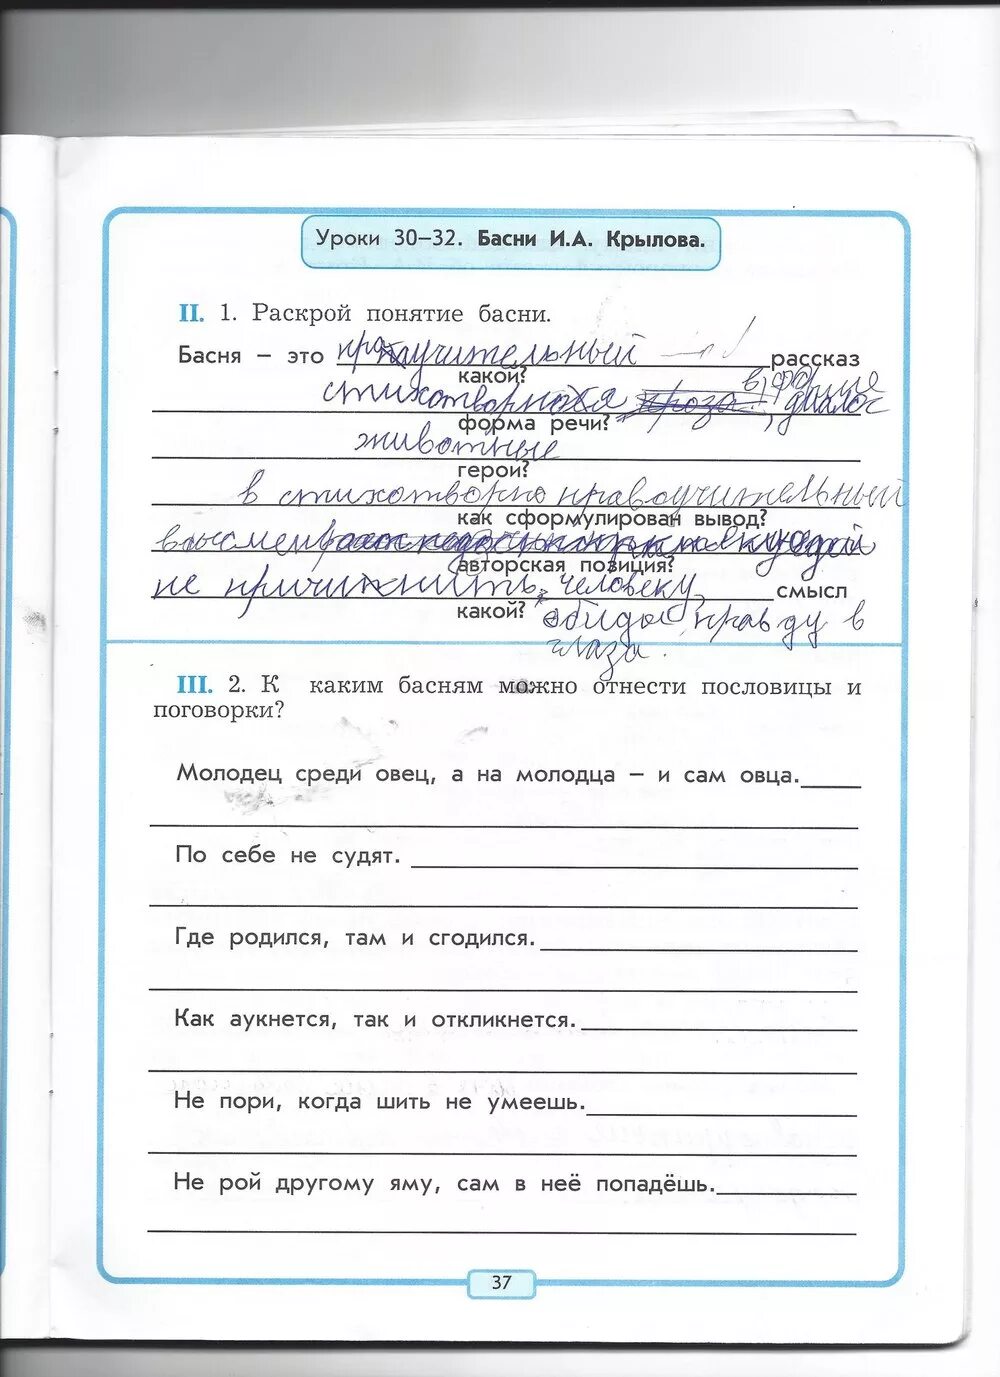 Уроки 30–32. Басни И.А. Крылова.
II. 1. Раскрой понятие басни.
Басня – это рассказ
какой?
стихотворная проза в форме
диалог
форма речи?
животные
герои?
в стихотворно нравоучительный
как сформулирован вывод?
авторская позиция?
не причинить человеку, смысл
какой? обиды правду в
глаза.
III. 2. К каким басням можно отнести пословицы и
поговорки?
Молодец среди овец, а на молодца – и сам овца.
По себе не судят.
Где родился, там и сгодился.
Как аукнется, так и откликнется.
Не пори, когда шить не умеешь.
Не рой другому яму, сам в неё попадёшь.
37